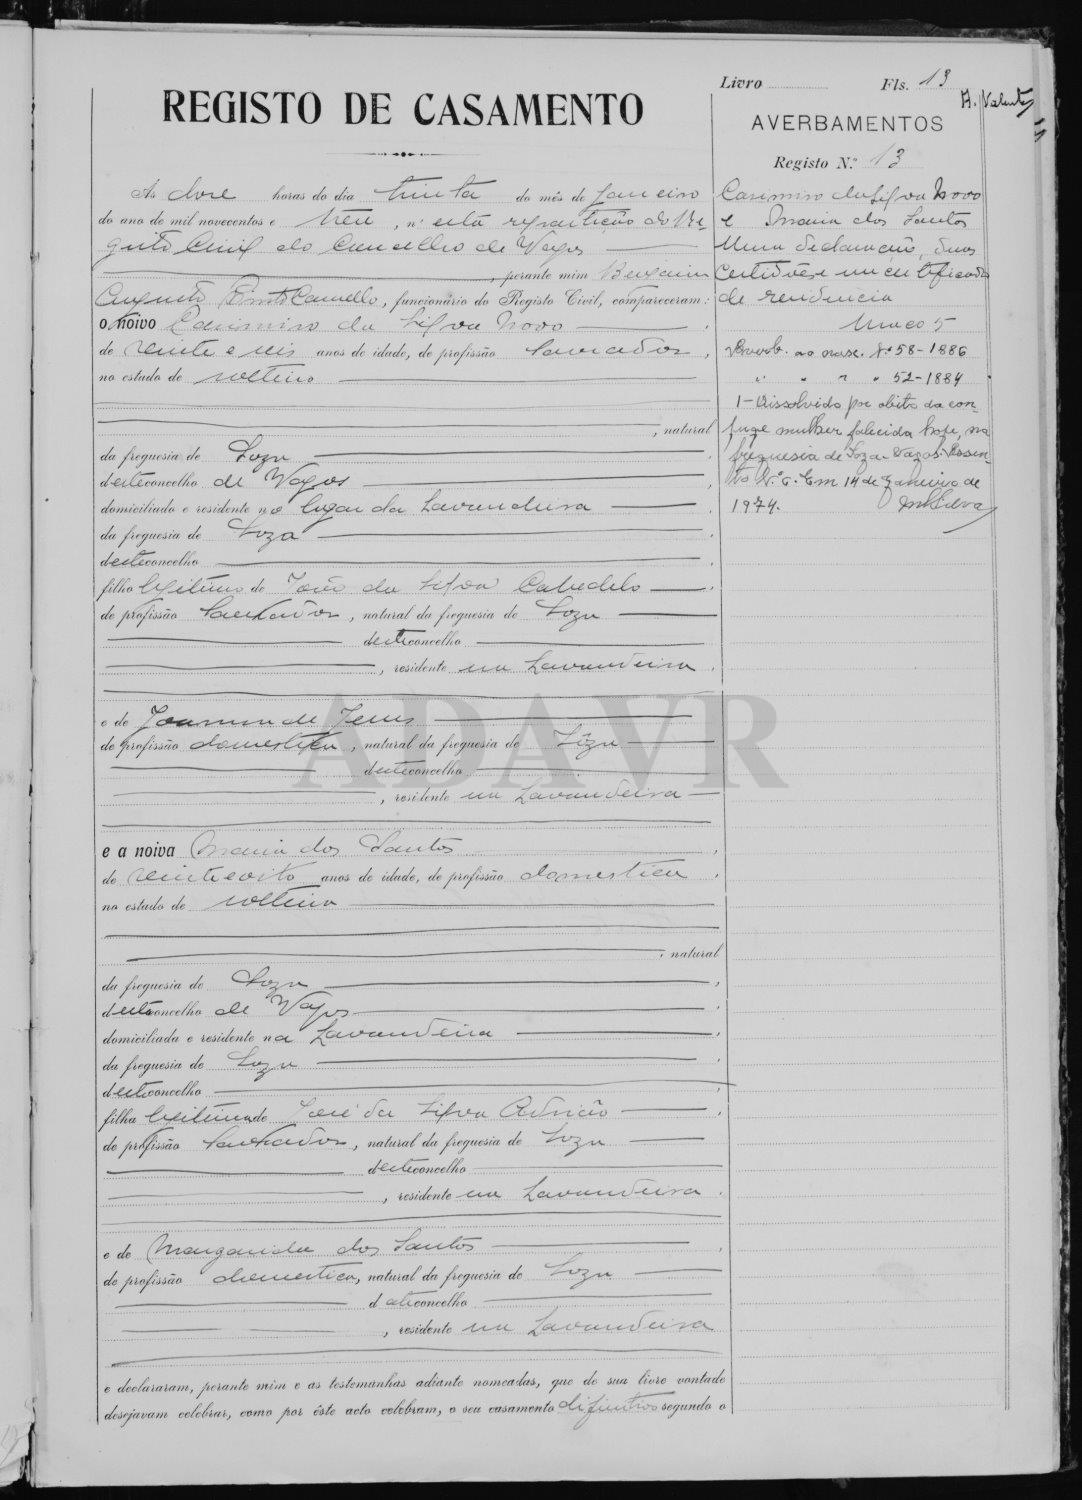 Livro Fls. 13
A. Valente
REGISTO DE CASAMENTO
AVERBAMENTOS
Registo N.º 13
Às doze horas do dia trinta do mês de Janeiro
do ano de mil novecentos e treze, n'esta repartição do Re-
gisto Civil do Concelho de Vagos
, perante mim Benjamim
Augusto Camello, funcionário do Registo Civil, compareceram:
o noivo Casimiro da Silva Novo
de vinte e seis anos de idade, de profissão lavrador,
no estado de solteiro
, natural
da freguesia de Soza
deste concelho de Vagos
domiciliado e residente no lugar da Lavandeira
da freguesia de Soza
deste concelho
filho legitimo de João da Silva Cabedelo
de profissão lavrador, natural da freguesia de Soza
deste concelho
, residente na Lavandeira
e de Joanna de Jesus
de profissão domestica, natural da freguesia de Sôza
deste concelho
, residente na Lavandeira
e a noiva Maria dos Santos
de vinte e oito anos de idade, de profissão domestica
no estado de solteira
, natural
da freguesia de Soza
deste concelho de Vagos
domiciliada e residente na Lavandeira
da freguesia de Soza
deste concelho
filha legitima de José da Silva Adrião
de profissão lavrador, natural da freguesia de Soza
deste concelho
, residente na Lavandeira
e de Margarida dos Santos
de profissão domestica, natural da freguesia de Soza
deste concelho
, residente na Lavandeira
e declararam, perante mim e as testemunhas adiante nomeadas, que de sua livre vontade
desejavam celebrar, como por êste acto celebram, o seu casamento difinitivo segundo o
Casimiro da Silva Novo
e Maria dos Santos
Uma declaração, duas
certidões e um certificado
de residencia
Maço 5
Averb. ao nasc. Nº 58-1886
" " " " 52-1884
1-Dissolvido por obito da con-
juge mulher falecida hoje, na
freguesia de Soza-Vagos. Assen-
to N.º 6. Em 14 de Janeiro de
1974.
ADAVR